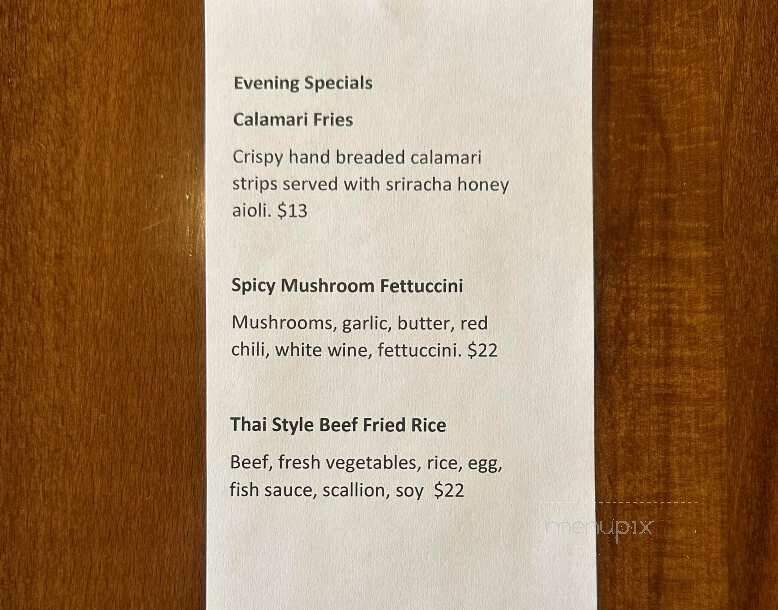 Evening Specials
Calamari Fries
Crispy hand breaded calamari
strips served with sriracha honey
aioli. $13
Spicy Mushroom Fettuccini
Mushrooms, garlic, butter, red
chili, white wine, fettuccini. $22
Thai Style Beef Fried Rice
Beef, fresh vegetables, rice, egg,
fish sauce, scallion, soy  $22
menupix